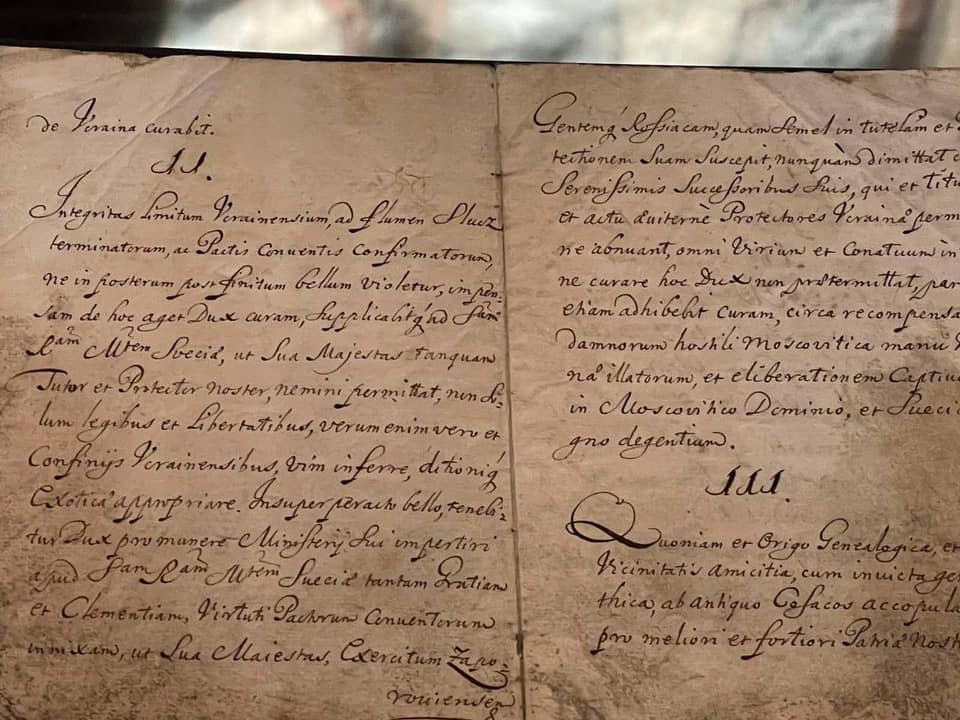 de Vcraina curabit.
II.
Integritas limitum Vcrainensium, ad flumen Slucz
terminatorum, ac Pactis Conventis Confirmatorum,
ne in posterum post finitum bellum violetur, impen-
sam de hoc aget Dux curam, Supplicabitq̃ ad Sam
Ram Mtem Sveciæ, ut Sua Majestas tanquam
Tutor et Protector noster, nemini permittat, non so-
lum legibus et Libertatibus, verum enim vero et
Confinijs Vcrainensibus, vim inferre, ditioniq̃
Exoticæ appropriare. Insuper peracto bello, tenebi-
tur Dux pro munere Ministerij sui impertiri
apud Sam Ram Mtem Sueciæ tantam Gratiam
et Clementiam, Virtuti Pactorum Conventorum
innixam, ut Sua Maiestas, Exercitum Zapo-
roviensem
Gentemq̃ Rossiacam, quam semel in tutelam et
tectionem Suam Suscepit, nunquam dimittat
Serenissimis Successoribus Suis, qui et titu
et actu æviternè Protectores Vcrainæ perm
ne abnuant, omni Virium et Conatuum in
ne curare hoc Dux non prætermittat, par
etiam adhibebit Curam, circa recompensa
damnorum hostili Moscovitica manu
næ illatorum, et eliberationem Captiv
in Moscovitico Dominio, et Sueci
gno degentium.
III.
Quoniam et Origo Genealogica, et
Vicinitatis amicitia, cum invicta gen
thica, ab antiquo Cosacos accopula
pro meliori et fortiori Patriæ Nost